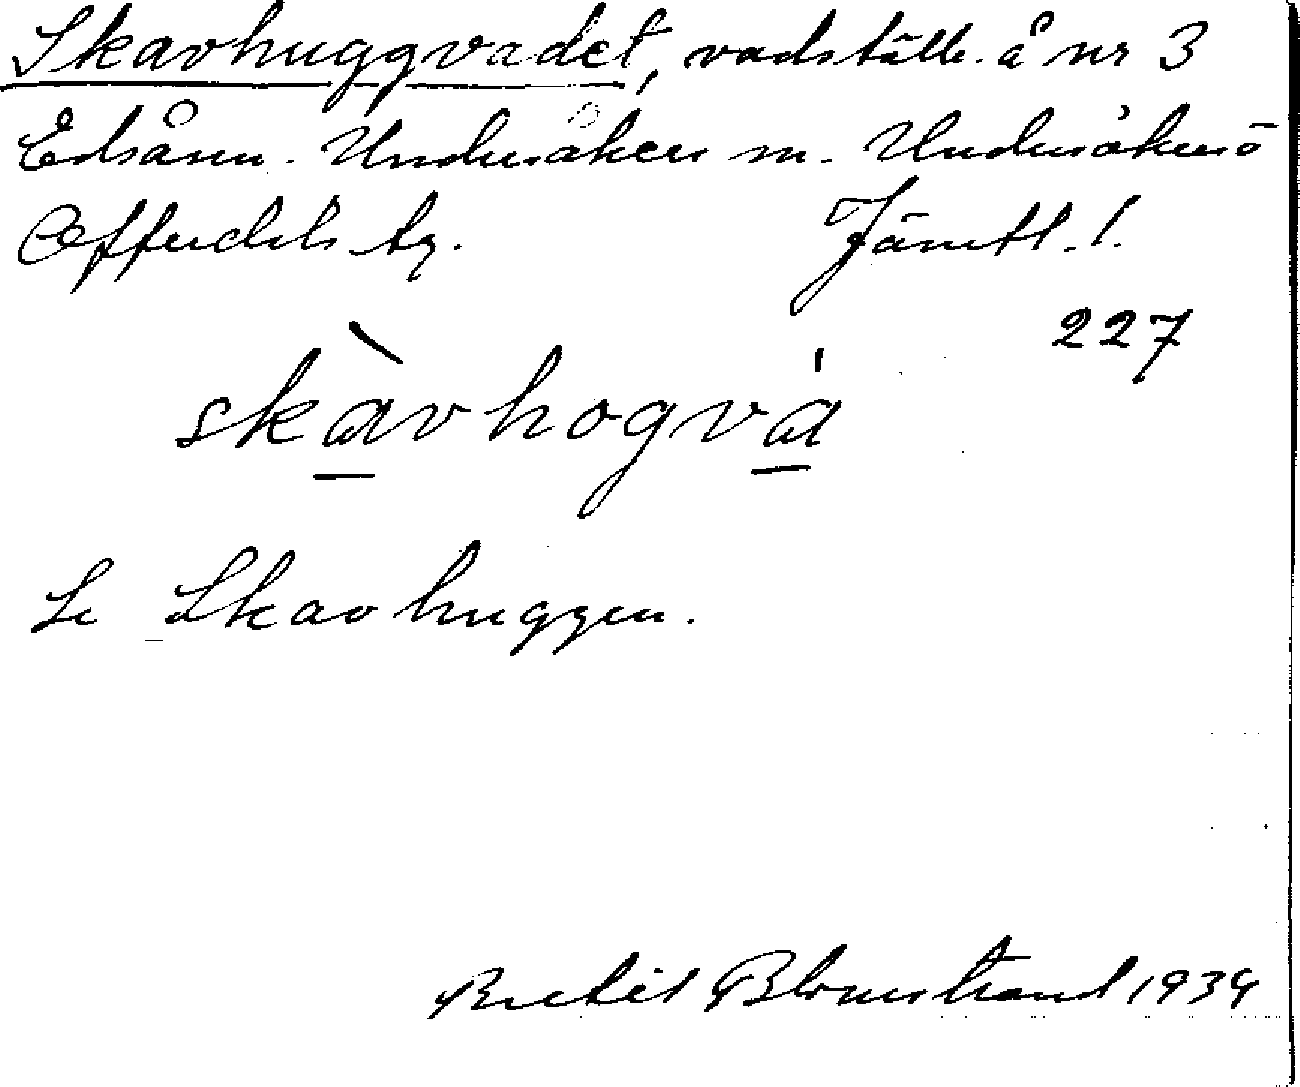 Skavhuggvadet, vadställe å nr 3
Edsåsen. Undersåkers sn. Undersåkers o
Offerdals tg. Jämtl. l.
227
skàvhogvá
Se Skavhuggen.
Bertil Blomstrand 1939